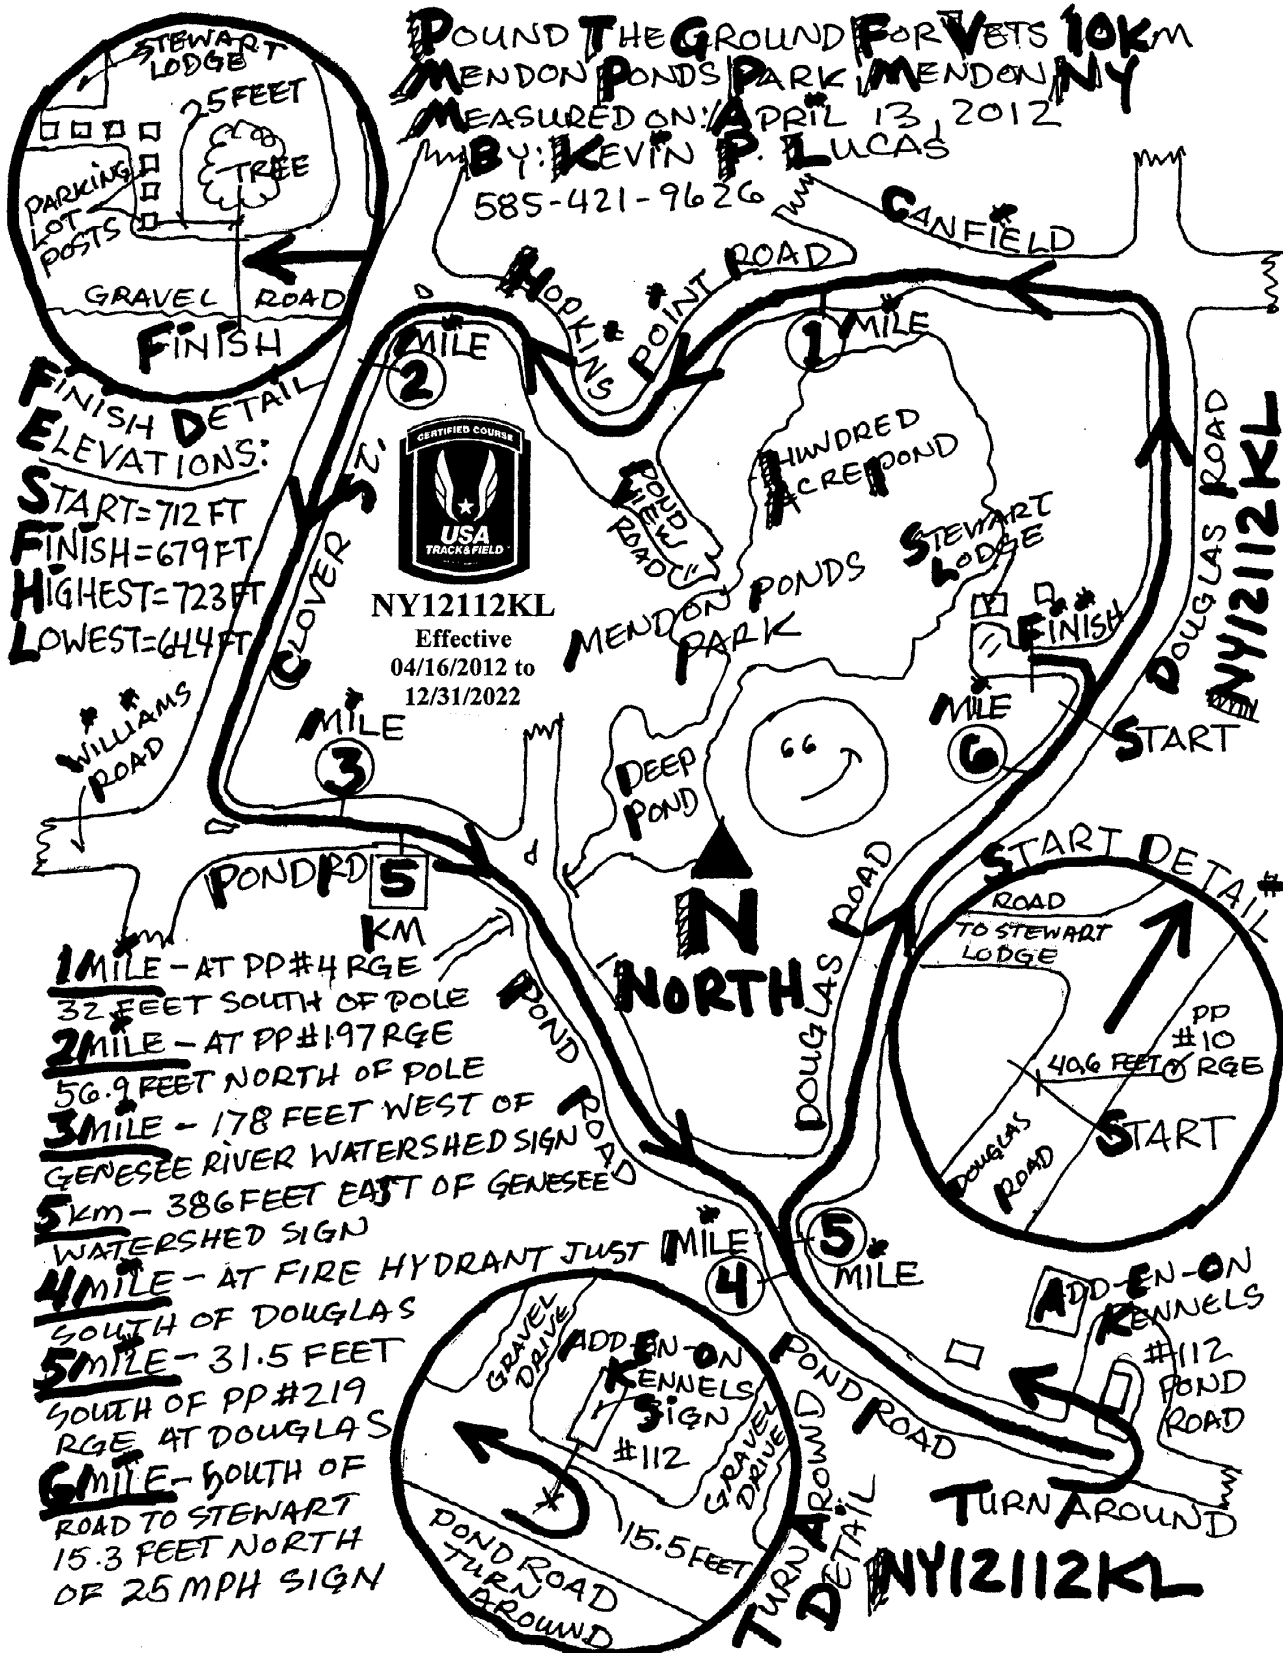 POUND THE GROUND FOR VETS 10KM
MENDON PONDS PARK, MENDON, NY
MEASURED ON: APRIL 13, 2012
BY: KEVIN P. LUCAS
585-421-9626
STEWART
LODGE
25 FEET
TREE
PARKING
LOT
POSTS
GRAVEL ROAD
FINISH
FINISH DETAIL
ELEVATIONS:
START=712 FT
FINISH=679 FT
HIGHEST=723 FT
LOWEST=644 FT
CANFIELD
ROAD
HOPKINS
POINT
MILE
1
MILE
2
CLOVER ST.
CERTIFIED COURSE
USA
TRACK & FIELD
NY12112KL
Effective
04/16/2012 to
12/31/2022
HUNDRED
ACRE POND
POND
VIEW
ROAD
STEWART
LODGE
MENDON PONDS
PARK
FINISH
DOUGLAS ROAD
NY12112KL
START
MILE
6
WILLIAMS
ROAD
MILE
3
DEEP
POND
POND RD
5
KM
N
NORTH
DOUGLAS ROAD
START DETAIL
ROAD
TO STEWART
LODGE
PP
#10
RGE
40.6 FEET
START
DOUGLAS
ROAD
1 MILE - AT PP#4 RGE
32 FEET SOUTH OF POLE
2 MILE - AT PP#197 RGE
56.9 FEET NORTH OF POLE
3 MILE - 178 FEET WEST OF
GENESEE RIVER WATERSHED SIGN
5 KM - 386 FEET EAST OF GENESEE
WATERSHED SIGN
4 MILE - AT FIRE HYDRANT JUST
SOUTH OF DOUGLAS
5 MILE - 31.5 FEET
SOUTH OF PP#219
RGE AT DOUGLAS
6 MILE - SOUTH OF
ROAD TO STEWART
15.3 FEET NORTH
OF 25 MPH SIGN
POND ROAD
MILE
4
5
MILE
POND ROAD
ADD-EN-ON
KENNELS
#112
POND
ROAD
TURN AROUND
GRAVEL
DRIVE
ADD-EN-ON
KENNELS
SIGN
#112
GRAVEL
DRIVE
15.5 FEET
POND ROAD
TURN
AROUND
TURN AROUND
DETAIL
NY12112KL